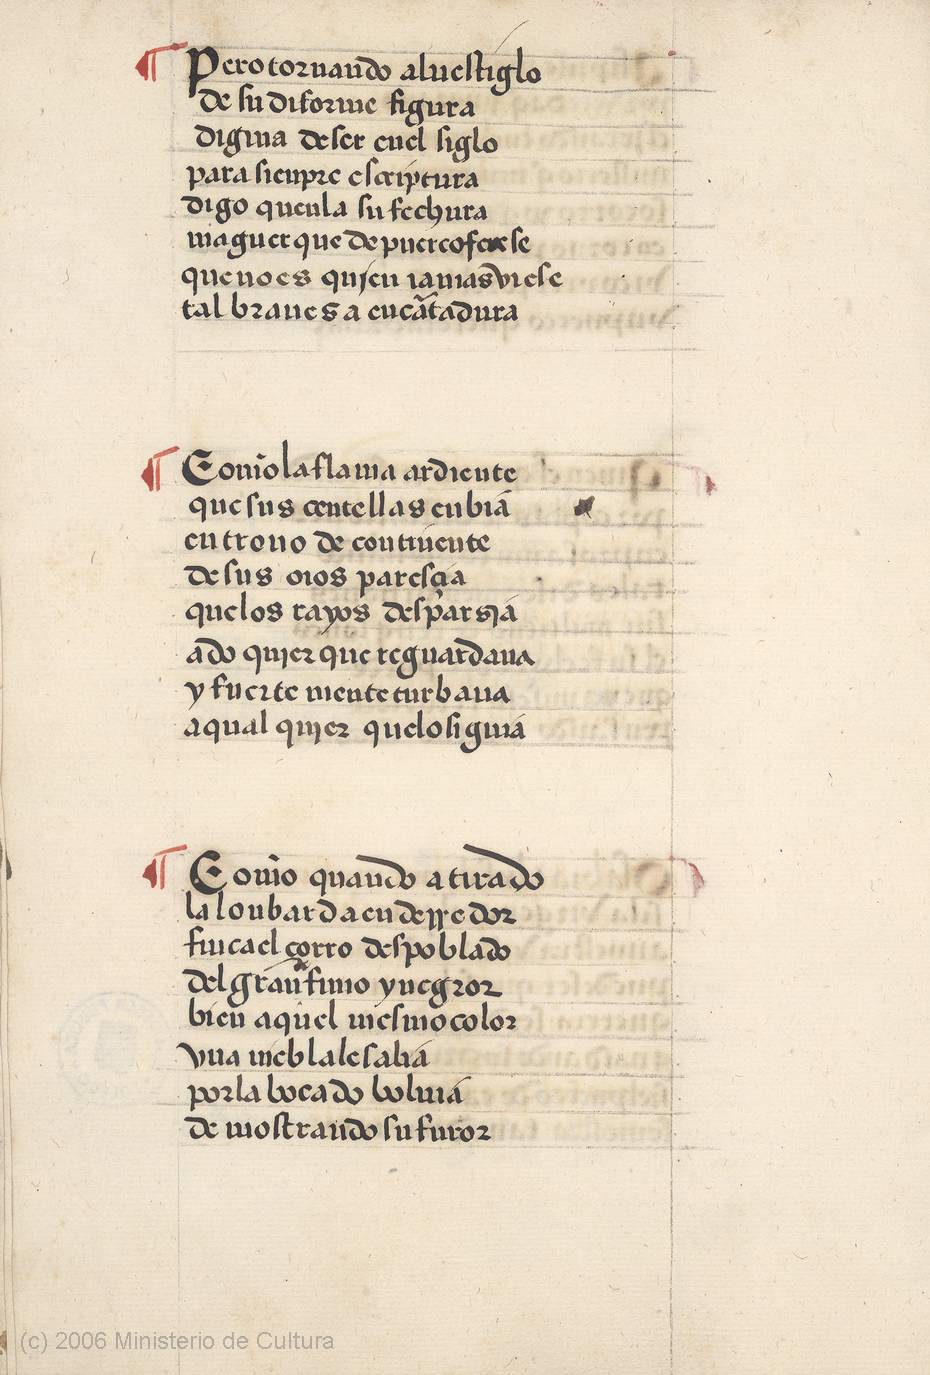 ¶ Pero tornando al uestiglo
de su diforme figura
digma de ser en el siglo
para sienpre escriptura
digo que en la su fechura
maguer que de puerco fuese
que no es quien iamas viese
tal braues a encãtadura
¶ Como la flama ardiente
que sus centellas enbiá
en trono de continente
de sus oios parescia
que los rayos desparsiá
ado quier que reguardaua
y fuerte mente turbaua
a qual quier que lo siguiá
¶ Como quando a tirado
la lonbarda en derredor
finca el çorro despoblado
del gran fumo y negror
bien aquel mesmo color
vna niebla le saliá
por la boca do boluiá
demostrando su furor
(c) 2006 Ministerio de Cultura